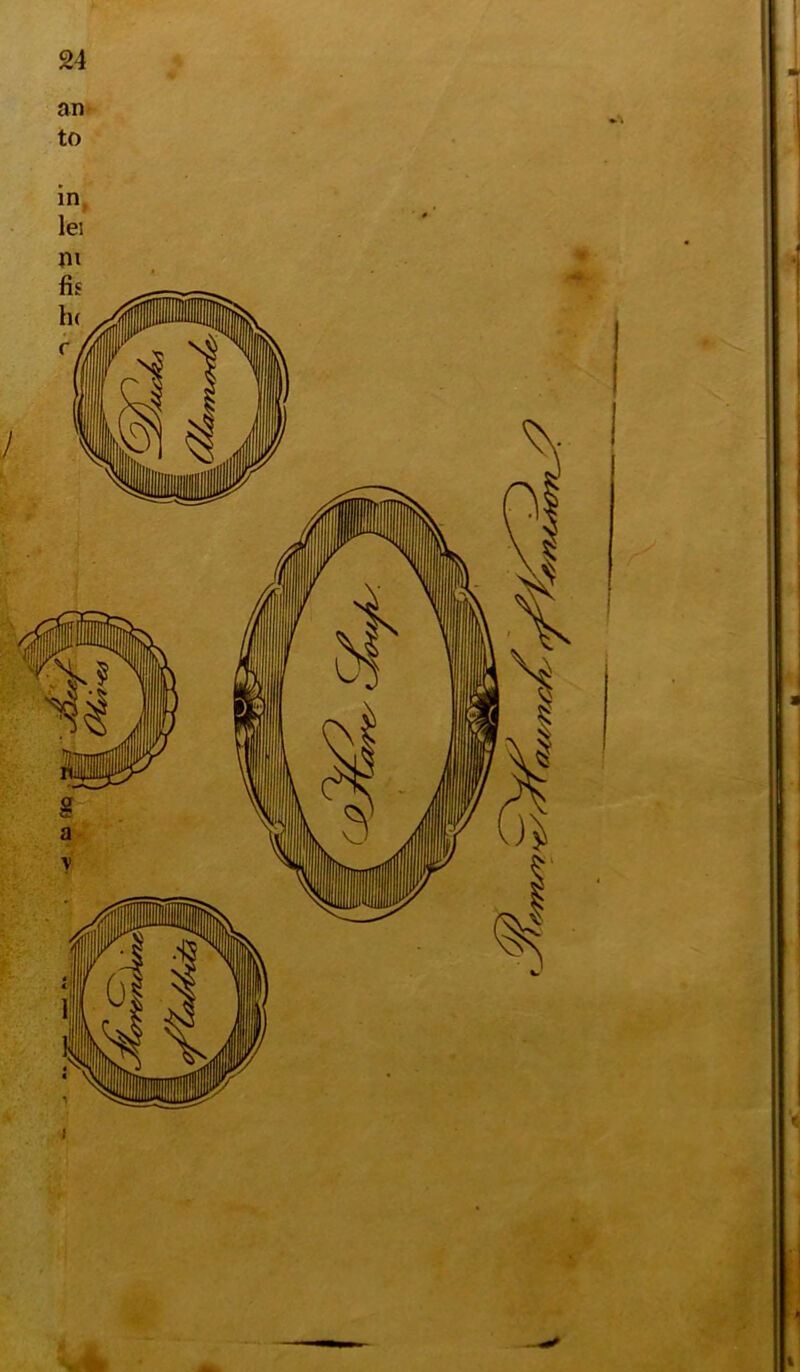 24
an
to
in
lei
fis
Ducks
Alamode
Beef
Olives
Hare Soup
Remove Haunch of Venison
Florendine
of Rabbits
a